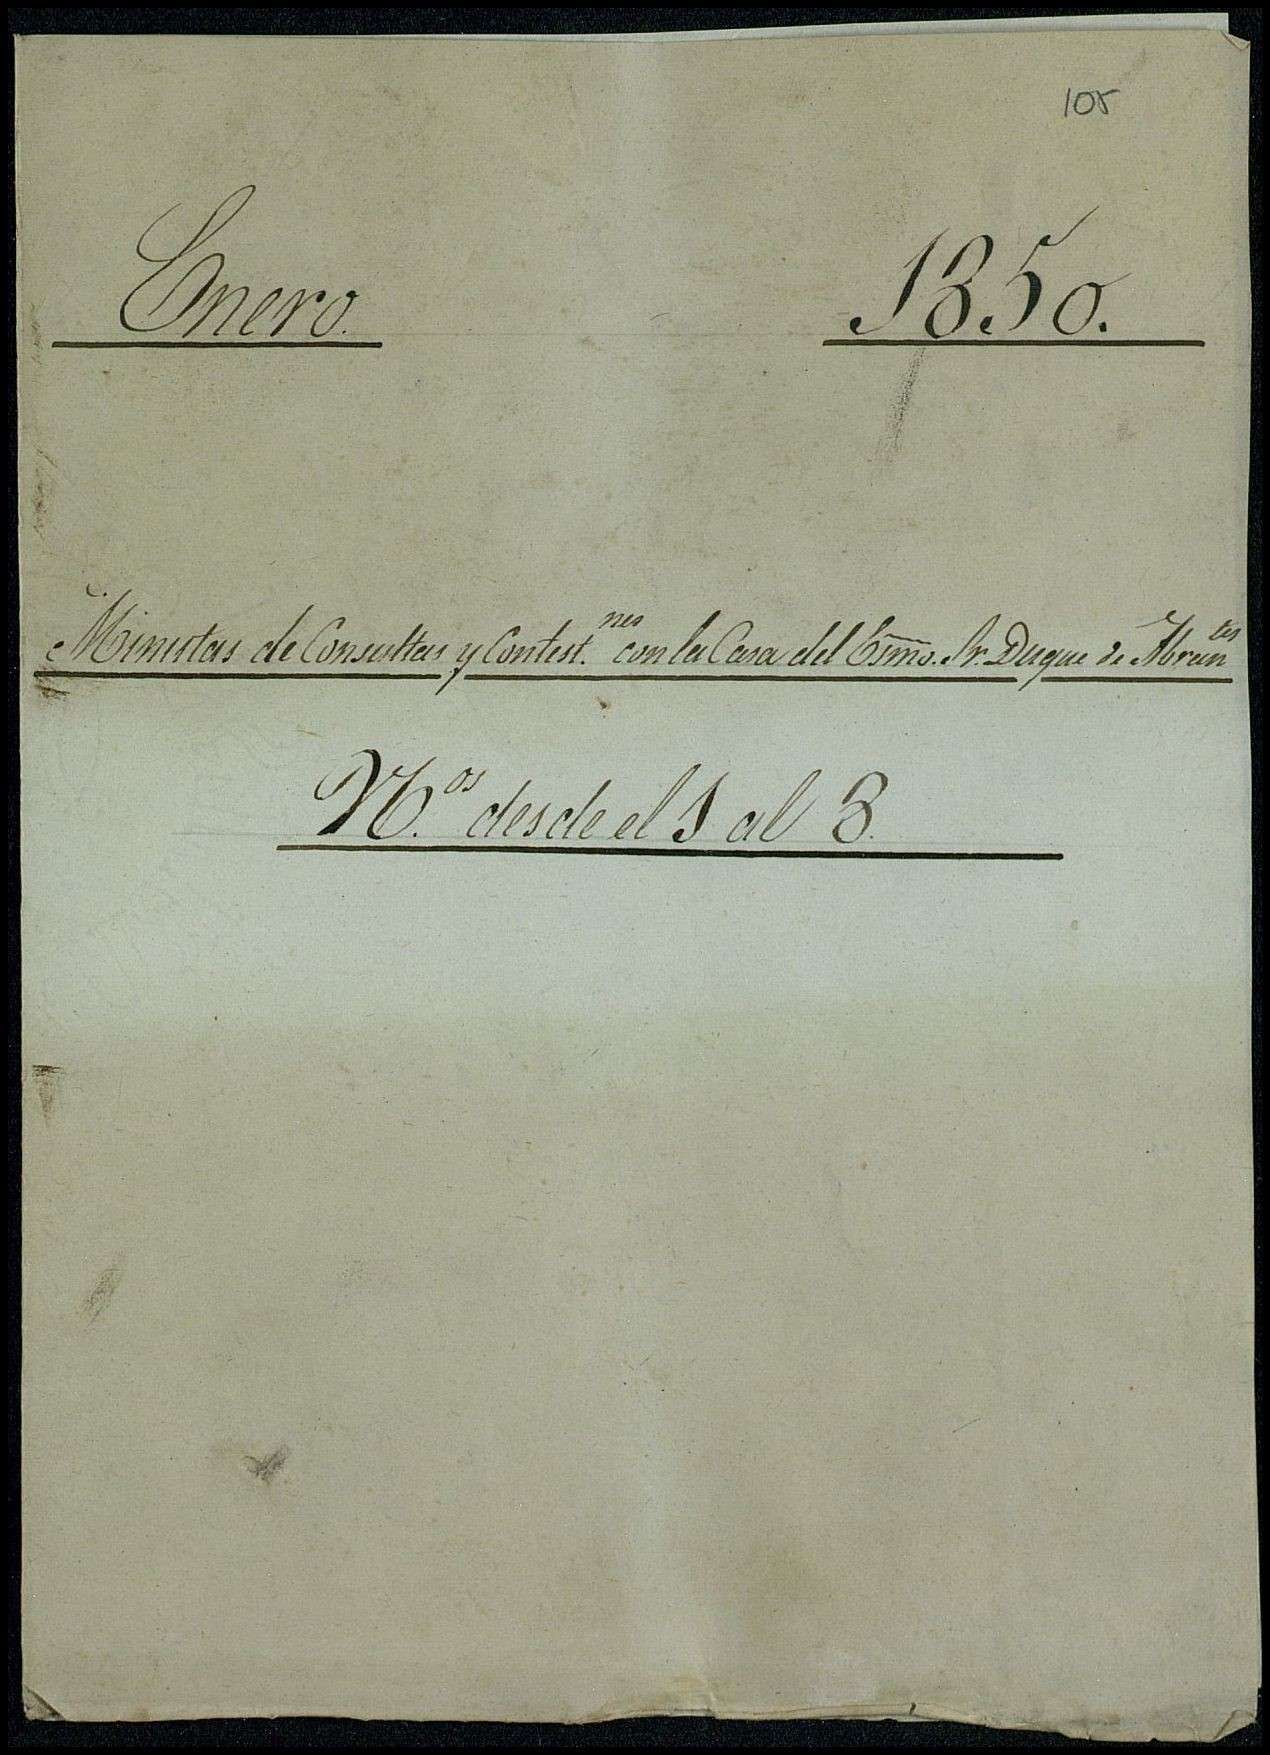 105
Enero. 1850.
Minutas de Consultas y Contest.nes con la Casa del Esmo. Sr. Duque de Abrantes
N.os desde el 1 al 8.